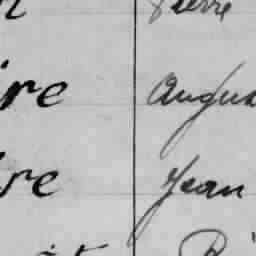 Pierre
ire Augus
ire Jean